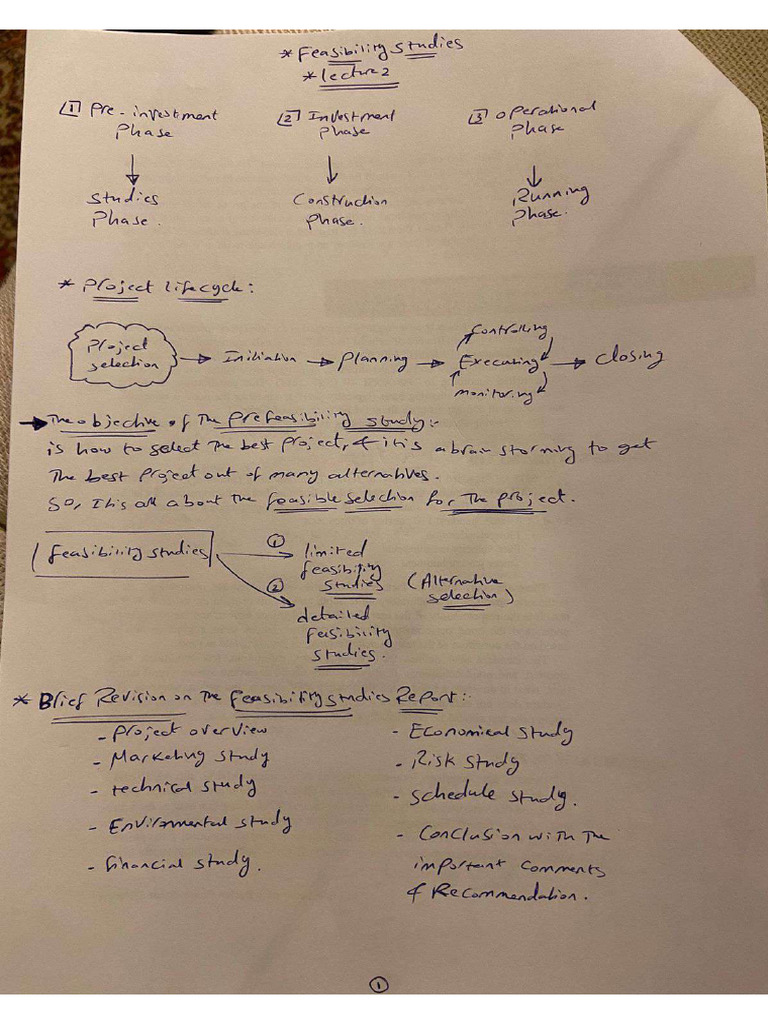 * Feasibility Studies
* Lecture 2
1 Pre-investment Phase
2 Investment Phase
3 Operational Phase
Studies Phase.
Construction Phase.
Running Phase.
* Project Lifecycle:
Project Selection
Initiation
Planning
Controlling
Executing
Monitoring
Closing
The objective of The Prefeasibility study:-
is how to select The best Project, & it is a brain storming to get
The best Project out of many alternatives.
So, It is all about the feasible selection for The project.
Feasibility studies
1
limited
feasibility
studies
(Alternative
selection)
2
detailed
feasibility
studies.
* Brief Revision on The Feasibility studies Report:-
- Project overview
- Marketing study
- technical study
- Environmental study
- Financial study.
- Economical study
- Risk study
- Schedule study.
- Conclusion with The
important comments
& Recommendation.
1